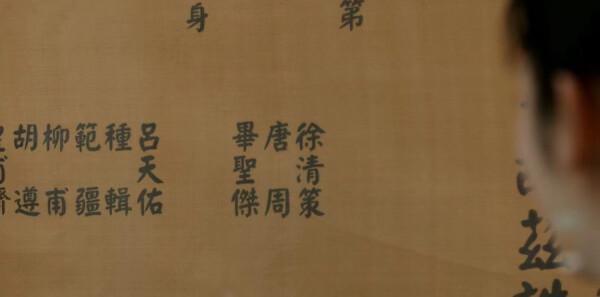 第
身
徐清策
唐周
畢聖傑
呂天佑
種輯
範疆
柳甫
胡遵